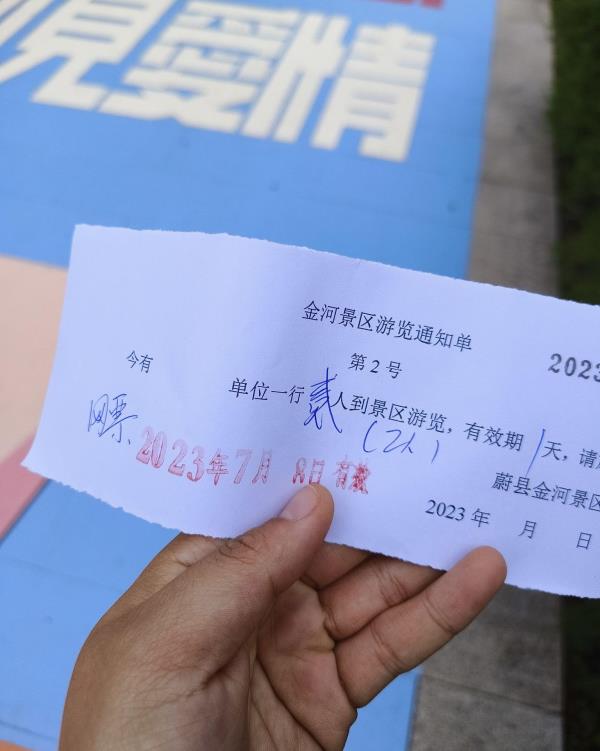 见爱情
金河景区游览通知单
第 2 号
2023
今有
单位一行 贰 人到景区游览，有效期 1 天，请
(2人)
网票
2023年7月 8日有效
蔚县金河景区
2023 年 月 日